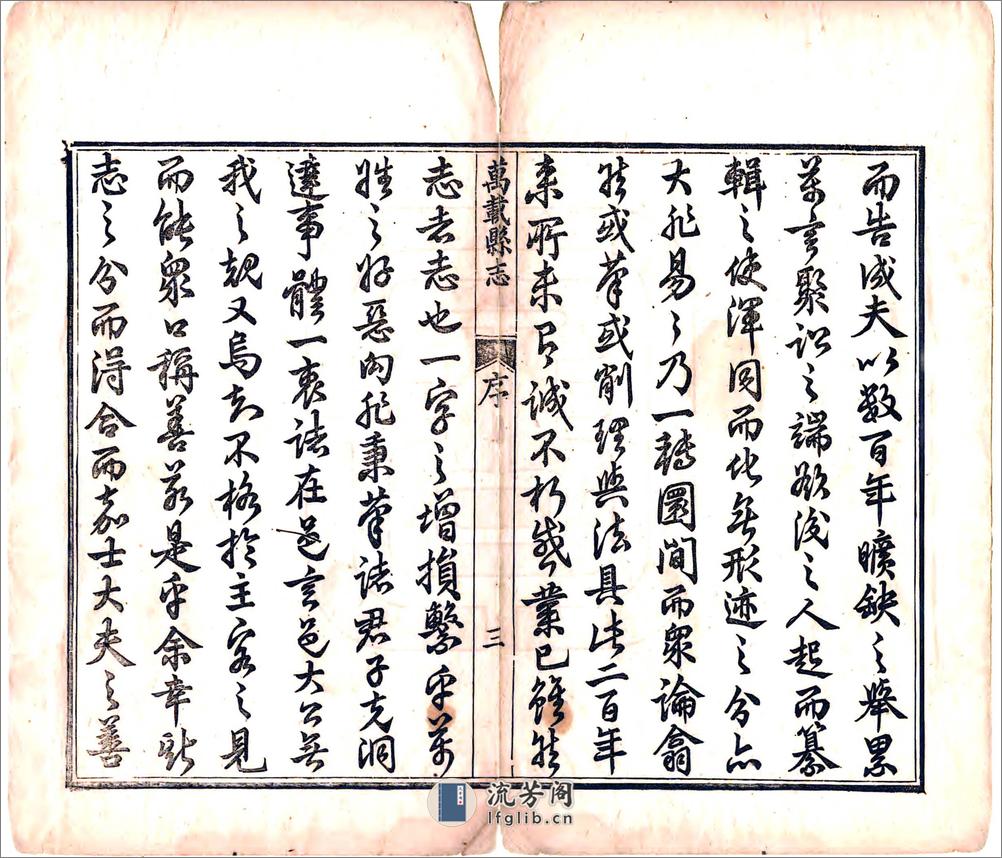 而告成夫以数百年曠缺之舉累
萬言聚訟之端欲後之人起而纂
輯之使渾同而化無形迹之分亦
大非易易乃一轉圜間而眾論翕
然或筆或削理與法具此二百年
来所未有誠不朽盛業已雖然
萬載縣志
序
三
志者志也一字之增損繫乎萬
姓之好惡向非秉筆諸君子克洞
達事體一衷諸在邑言邑大公無
我之規又烏知不格於主客之見
而能眾口稱善若是乎余幸斯
志之分而得合而嘉士大夫之善
流芳阁
lfglib.cn